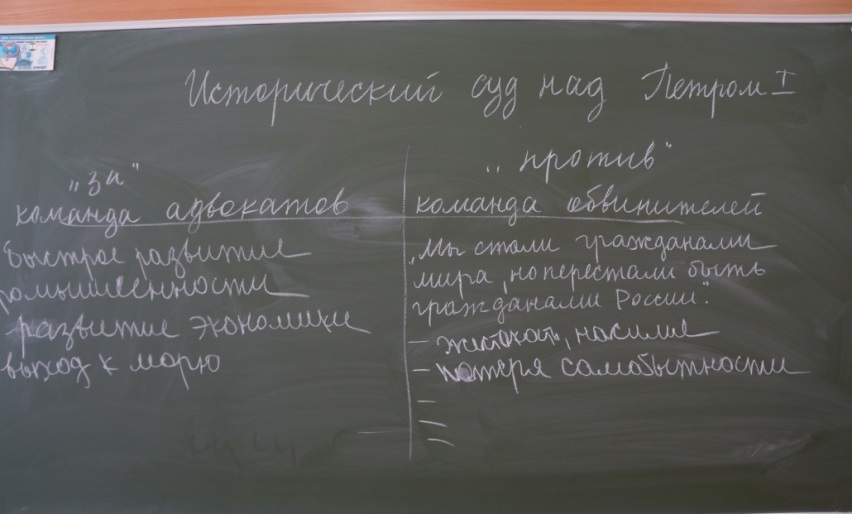 Исторический суд над Петром I
„за"
команда адвокатов
быстрое развитие
ромышленности
развитие экономики
выход к морю
„против"
команда обвинителей
„Мы стали гражданами
мира, но перестали быть
гражданами России".
– жестокость, насилие
– потеря самобытности
–
–
–